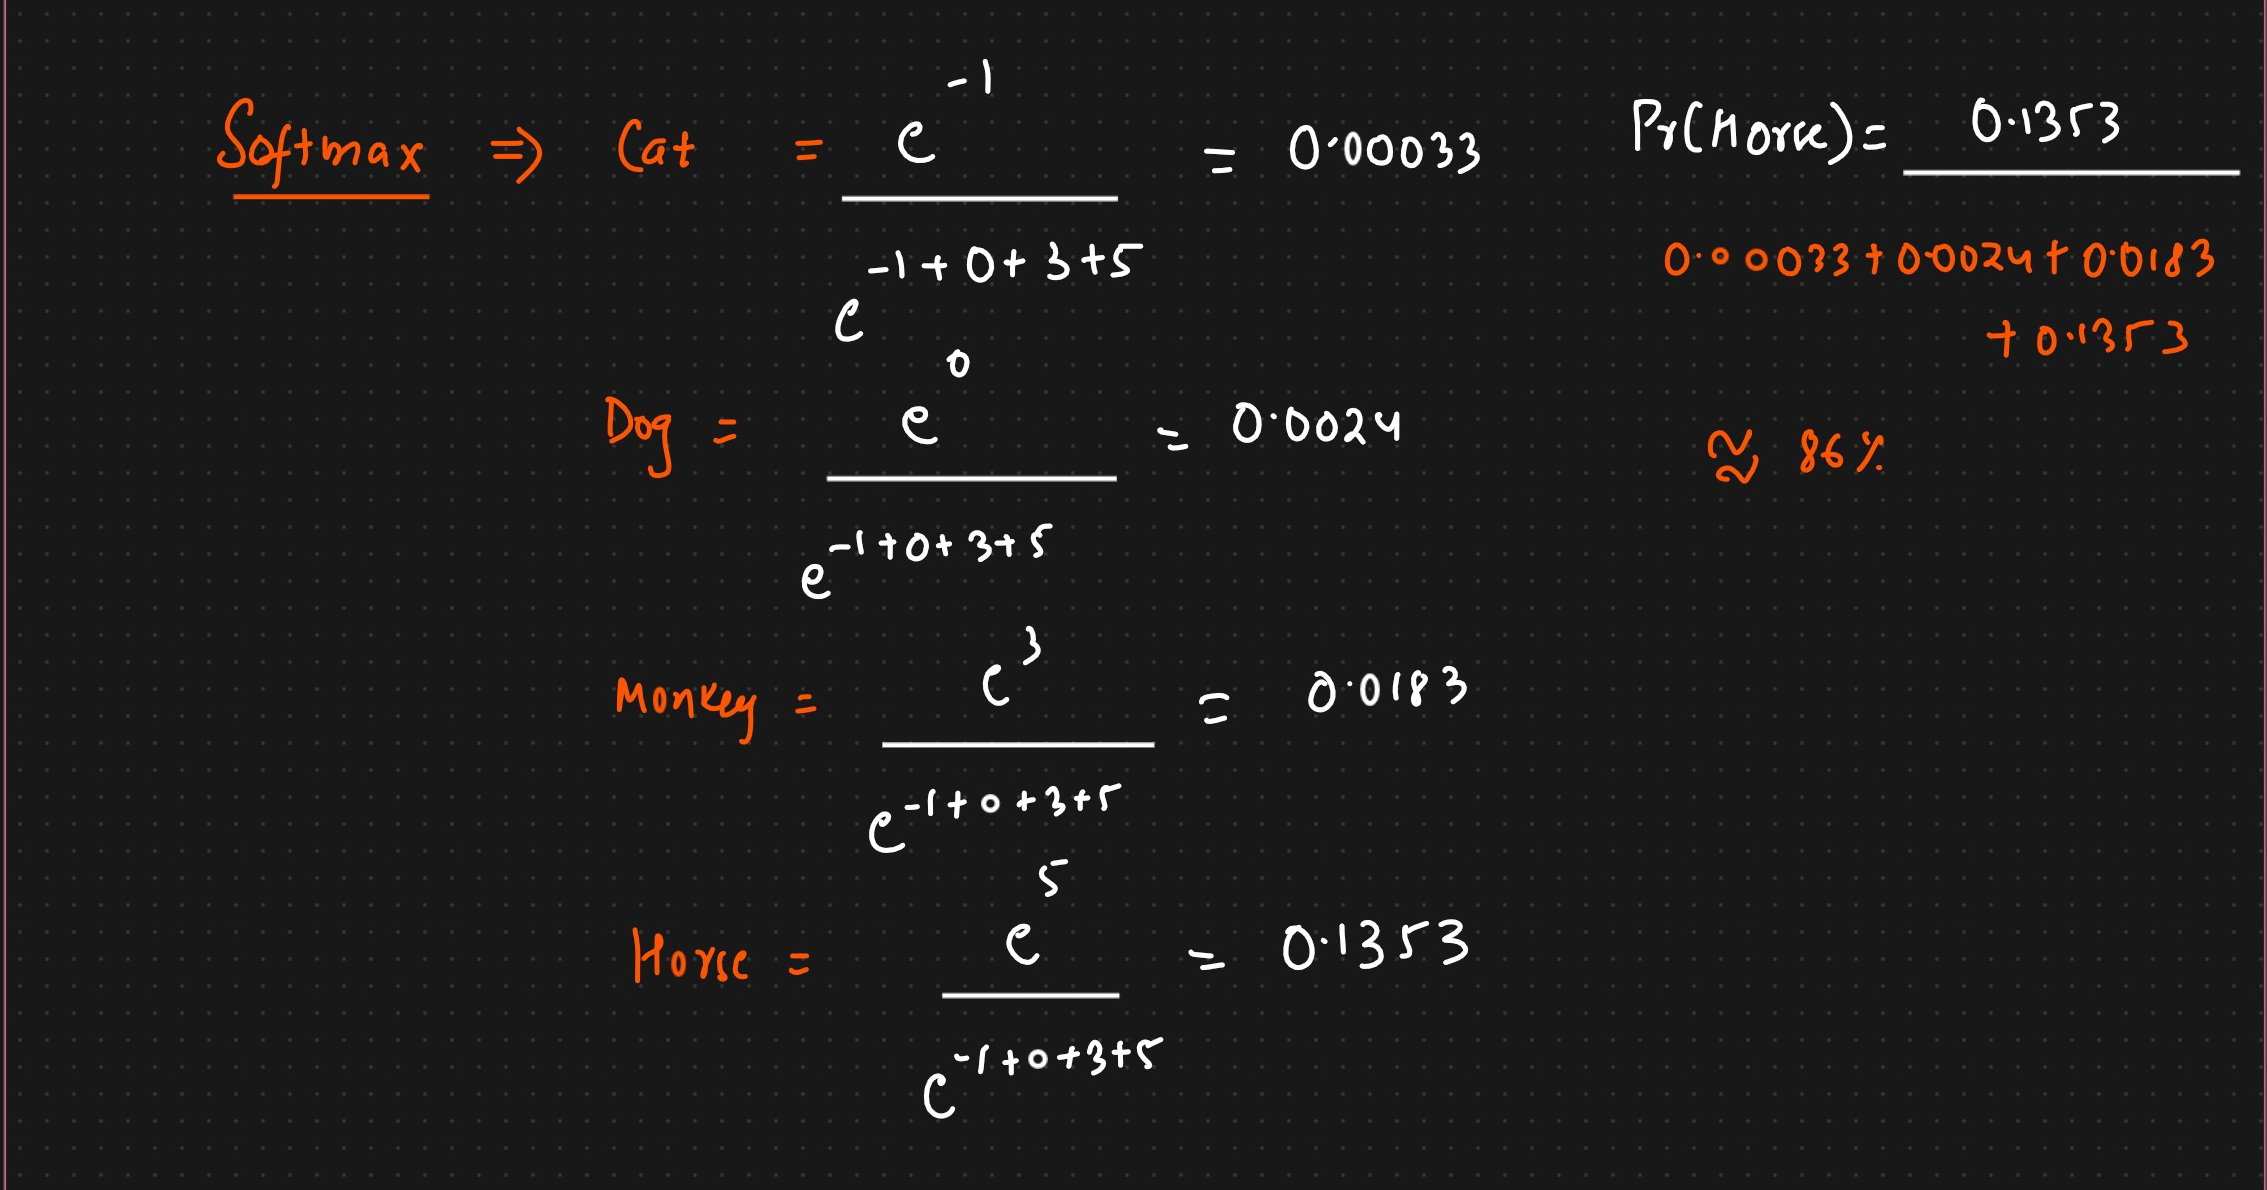 Softmax ⇒ Cat = e^-1 / e^-1+0+3+5 = 0.00033
Dog = e^0 / e^-1+0+3+5 = 0.0024
Monkey = e^3 / e^-1+0+3+5 = 0.0183
Horse = e^5 / e^-1+0+3+5 = 0.1353
Pr(Horse) = 0.1353
0.00033 + 0.0024 + 0.0183
+ 0.1353
≈ 86%